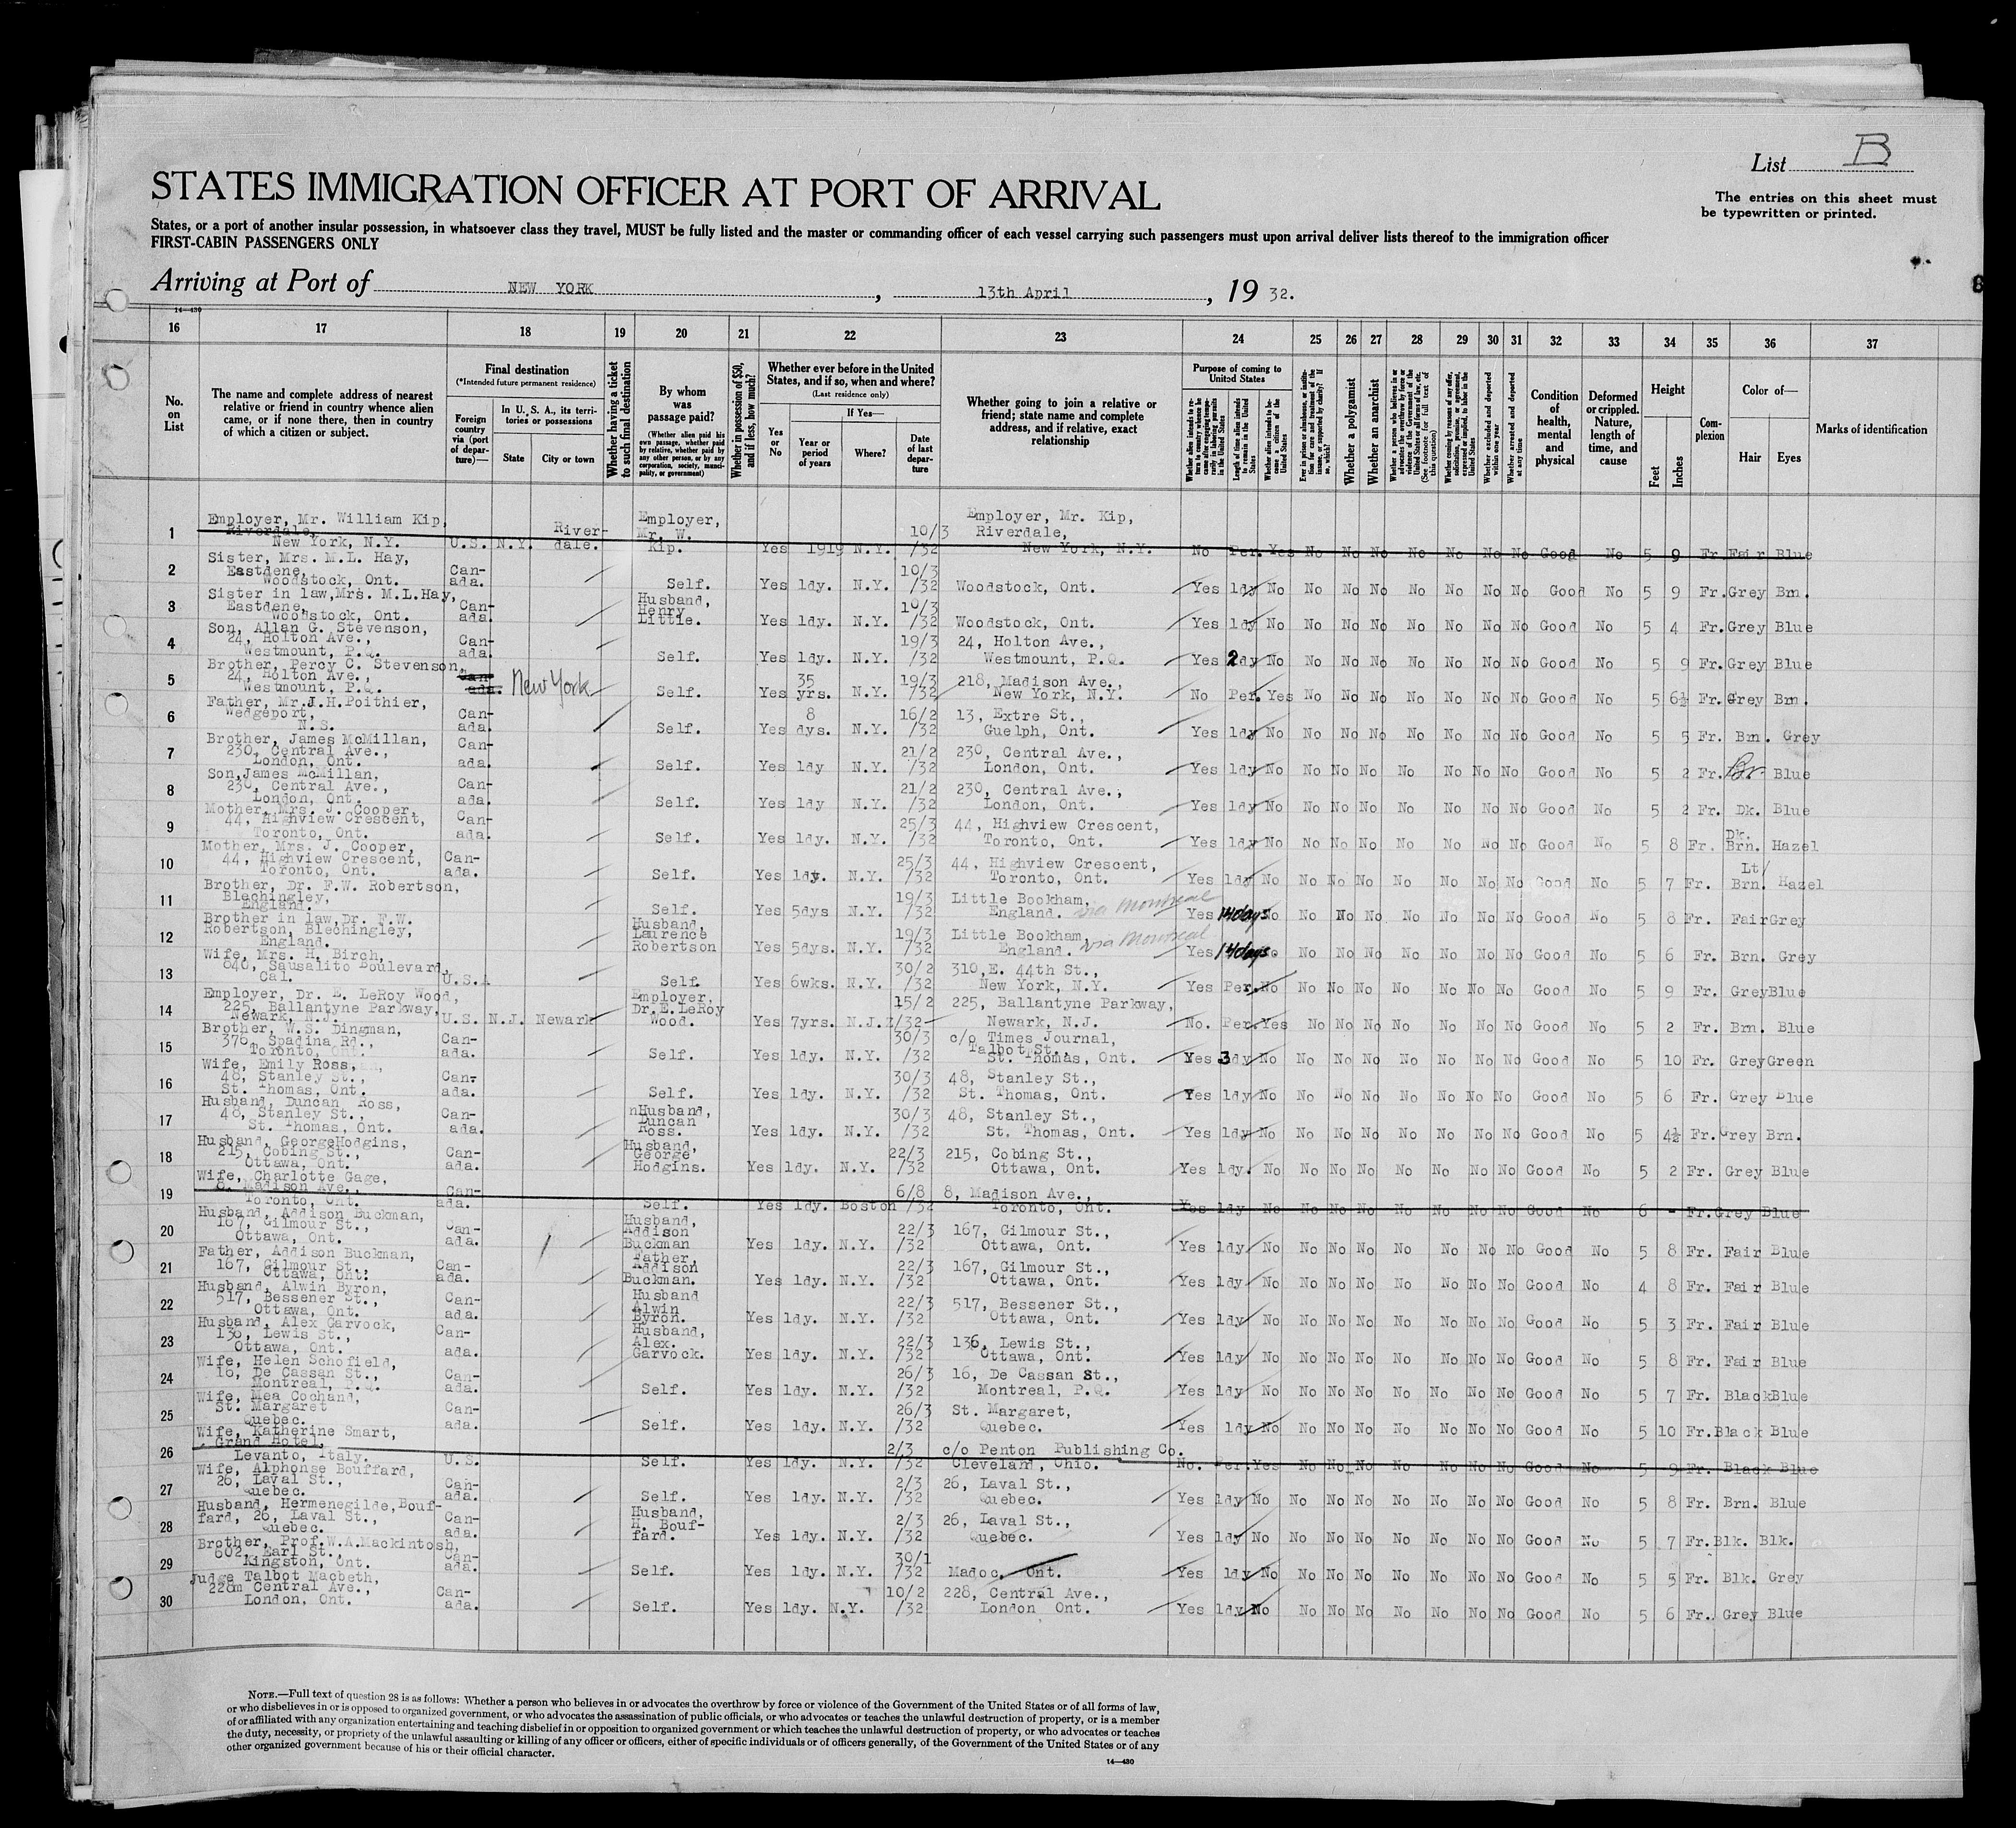 List B
STATES IMMIGRATION OFFICER AT PORT OF ARRIVAL
The entries on this sheet must
be typewritten or printed.
States, or a port of another insular possession, in whatsoever class they travel, MUST be fully listed and the master or commanding officer of each vessel carrying such passengers must upon arrival deliver lists thereof to the immigration officer
FIRST-CABIN PASSENGERS ONLY
Arriving at Port of NEW YORK, 13th April, 19 32.
14—430
16 17 18 19 20 21 22 23 24 25 26 27 28 29 30 31 32 33 34 35 36 37
No. on List
The name and complete address of nearest relative or friend in country whence alien came, or if none there, then in country of which a citizen or subject.
Final destination
(*Intended future permanent residence)
Foreign country via (port of departure)—
In U. S. A., its territories or possessions
State City or town
Whether having a ticket to such final destination
By whom was passage paid?
(Whether alien paid his own passage, whether paid by relative, whether paid by any other person, or by any corporation, society, municipality, or government)
Whether in possession of $50, and if less, how much?
Whether ever before in the United States, and if so, when and where?
(Last residence only)
Yes or No
If Yes—
Year or period of years Where? Date of last departure
Whether going to join a relative or friend; state name and complete address, and if relative, exact relationship
Purpose of coming to United States
Whether a polygamist
Whether an anarchist
Condition of health, mental and physical
Deformed or crippled. Nature, length of time, and cause
Height
Feet Inches
Complexion
Color of—
Hair Eyes
Marks of identification
1 Employer, Mr. William Kip, Riverdale, New York, N.Y. U.S. N.Y. River-dale. Employer, Mr. W. Kip. Yes 1919 N.Y. 10/3/32 Employer, Mr. Kip, Riverdale, New York, N.Y. No Per. Yes No No No No No No No Good No 5 9 Fr. Fair Blue
2 Sister, Mrs. M.L. Hay, Eastdene, Woodstock, Ont. Can-ada. Self. Yes 1dy. N.Y. 10/3/32 Woodstock, Ont. Yes 1dy No No No No No No No No Good No 5 9 Fr. Grey Brn.
3 Sister in law, Mrs. M.L.Hay, Eastdene, Woodstock, Ont. Can-ada. Husband, Henry Little. Yes 1dy. N.Y. 10/3/32 Woodstock, Ont. Yes 1dy No No No No No No No No Good No 5 4 Fr. Grey Blue
4 Son, Allan G. Stevenson, 24, Holton Ave., Westmount, P.Q. Can-ada. Self. Yes 1dy. N.Y. 19/3/32 24, Holton Ave., Westmount, P.Q. Yes 2dy No No No No No No No No Good No 5 9 Fr. Grey Blue
5 Brother, Percy C. Stevenson, 24, Holton Ave., Westmount, P.Q. Can-ada. New York Self. Yes 35 yrs. N.Y. 19/3/32 218, Madison Ave., New York, N.Y. No Per. Yes No No No No No No No Good No 5 6½ Fr. Grey Brn.
6 Father, Mr.J.H.Poithier, Wedgeport, N.S. Can-ada. Self. Yes 8 dys. N.Y. 16/2/32 13, Extre St., Guelph, Ont. Yes 1dy No No No No No No No No Good No 5 5 Fr. Brn. Grey
7 Brother, James McMillan, 230, Central Ave., London, Ont. Can-ada. Self. Yes 1dy N.Y. 21/2/32 230, Central Ave., London, Ont. Yes 1dy No No No No No No No No Good No 5 2 Fr. Br Blue
8 Son, James McMillan, 230, Central Ave., London, Ont. Can-ada. Self. Yes 1dy N.Y. 21/2/32 230, Central Ave., London, Ont. Yes 1dy No No No No No No No No Good No 5 2 Fr. Dk. Blue
9 Mother, Mrs. J. Cooper, 44, Highview Crescent, Toronto, Ont. Can-ada. Self. Yes 1dy. N.Y. 25/3/32 44, Highview Crescent, Toronto, Ont. Yes 1dy No No No No No No No No Good No 5 8 Fr. Dk. Brn. Hazel
10 Mother, Mrs. J. Cooper, 44, Highview Crescent, Toronto, Ont. Can-ada. Self. Yes 1dy. N.Y. 25/3/32 44, Highview Crescent, Toronto, Ont. Yes 1dy No No No No No No No No Good No 5 7 Fr. Lt/ Brn. Hazel
11 Brother, Dr. F.W. Robertson, Blechingley, England. Self. Yes 5dys N.Y. 19/3/32 Little Bookham, England. via Montreal Yes 14days No No No No No No No No Good No 5 8 Fr. Fair Grey
12 Brother in law, Dr. F.W. Robertson, Blechingley, England. Husband, Laurence Robertson Yes 5dys. N.Y. 19/3/32 Little Bookham, England. via Montreal Yes 14days. No No No No No No No Good No 5 6 Fr. Brn. Grey
13 Wife, Mrs. H. Birch, 840, Sausalito Boulevard, Cal. U.S.A Self. Yes 6wks. N.Y. 30/2/32 310, E. 44th St., New York, N.Y. Yes Per. No No No No No No No No Good No 5 9 Fr. Grey Blue
14 Employer, Dr. E. LeRoy Wood, 225, Ballantyne Parkway, Newark, N.J. U.S. N.J. Newark Employer, Dr.E.LeRoy Wood. Yes 7yrs. N.J. 15/2/32 225, Ballantyne Parkway, Newark, N.J. No. Per. Yes No No No No No No No Good No 5 2 Fr. Brn. Blue
15 Brother, W.S. Dingman, 376, Spadina Rd., Toronto, Ont. Can-ada. Self. Yes 1dy. N.Y. 30/3/32 c/o Times Journal, Talbot St., St. Thomas, Ont. Yes 3dy No No No No No No No No Good No 5 10 Fr. Grey Green
16 Wife, Emily Ross, 48, Stanley St., St. Thomas, Ont. Can-ada. Self. Yes 1dy. N.Y. 30/3/32 48, Stanley St., St. Thomas, Ont. Yes 1dy No No No No No No No No Good No 5 6 Fr. Grey Blue
17 Husband, Duncan Ross, 48, Stanley St., St. Thomas, Ont. Can-ada. nHusband, Duncan Ross. Yes 1dy. N.Y. 30/3/32 48, Stanley St., St. Thomas, Ont. Yes 1dy No No No No No No No No Good No 5 4½ Fr. Grey Brn.
18 Husband, GeorgeHodgins, 215, Cobing St., Ottawa, Ont. Can-ada. Husband, George Hodgins. Yes 1dy. N.Y. 22/3/32 215, Cobing St., Ottawa, Ont. Yes 1dy. No No No No No No No No Good No 5 2 Fr. Grey Blue
19 Wife, Charlotte Gage, 8, Madison Ave., Toronto, Ont. Can-ada. Self. Yes 1dy. Boston 6/8/32 8, Madison Ave., Toronto, Ont. Yes 1dy No No No No No No No No Good No 6 - Fr. Grey Blue
20 Husband, Addison Buckman, 167, Gilmour St., Ottawa, Ont. Can-ada. Husband, Addison Buckman Yes 1dy. N.Y. 22/3/32 167, Gilmour St., Ottawa, Ont. Yes 1dy No No No No No No No No Good No 5 8 Fr. Fair Blue
21 Father, Addison Buckman, 167, Gilmour St., Ottawa, Ont. Can-ada. Father, Addison Buckman. Yes 1dy. N.Y. 22/3/32 167, Gilmour St., Ottawa, Ont. Yes 1dy No No No No No No No No Good No 4 8 Fr. Fair Blue
22 Husband, Alwin Byron, 517, Bessener St., Ottawa, Ont. Can-ada. Husband Alwin Byron. Yes 1dy. N.Y. 22/3/32 517, Bessener St., Ottawa, Ont. Yes 1dy No No No No No No No No Good No 5 3 Fr. Fair Blue
23 Husband, Alex Garvock, 136, Lewis St., Ottawa, Ont. Can-ada. Husband, Alex. Garvock. Yes 1dy. N.Y. 22/3/32 136, Lewis St., Ottawa, Ont. Yes 1dy No No No No No No No No Good No 5 8 Fr. Fair Blue
24 Wife, Helen Schofield, 16, De Cassan St., Montreal, P.Q. Can-ada. Self. Yes 1dy. N.Y. 26/3/32 16, De Cassan St., Montreal, P.Q. Yes 1dy No No No No No No No No Good No 5 7 Fr. Black Blue
25 Wife, Mea Cochand, St. Margaret Quebec. Can-ada. Self. Yes 1dy. N.Y. 26/3/32 St. Margaret, Quebec. Yes 1dy No No No No No No No No Good No 5 10 Fr. Black Blue
26 Wife, Katherine Smart, Grand Hotel, Levanto, Italy. U.S. Self. Yes 1dy. N.Y. 2/3/32 c/o Penton Publishing Co. Cleveland, Ohio. No. Per. Yes No No No No No No No Good No 5 9 Fr. Black Blue
27 Wife, Alphonse Bouffard, 26, Laval St., Quebec. Can-ada. Self. Yes 1dy. N.Y. 2/3/32 26, Laval St., Quebec. Yes 1dy No No No No No No No No Good No 5 8 Fr. Brn. Blue
28 Husband, Hermenegilde, Bouf-fard, 26, Laval St., Quebec. Can-ada. Husband, H. Bouf-fard. Yes 1dy. N.Y. 2/3/32 26, Laval St., Quebec. Yes 1dy No No No No No No No No Good No 5 7 Fr. Blk. Blk.
29 Brother, Prof.W.A.Mackintosh, 602, Earl St., Kingston, Ont. Can-ada. Self. Yes 1dy. N.Y. 30/1/32 Madoc, Ont. Yes 1dy No No No No No No No No Good No 5 5 Fr. Blk. Grey
30 Judge Talbot Macbeth, 228m Central Ave., London, Ont. Can-ada. Self. Yes 1dy. N.Y. 10/2/32 228, Central Ave., London Ont. Yes 1dy No No No No No No No No Good No 5 6 Fr. Grey Blue
NOTE.—Full text of question 28 is as follows: Whether a person who believes in or advocates the overthrow by force or violence of the Government of the United States or of all forms of law,
or who disbelieves in or is opposed to organized government, or who advocates the assassination of public officials, or who advocates or teaches the unlawful destruction of property, or is a member
of or affiliated with any organization entertaining and teaching disbelief in or opposition to organized government or which teaches the unlawful destruction of property, or who advocates or teaches
the duty, necessity, or propriety of the unlawful assaulting or killing of any officer or officers, either of specific individuals or of officers generally, of the Government of the United States or of any
other organized government because of his or their official character.
14—430